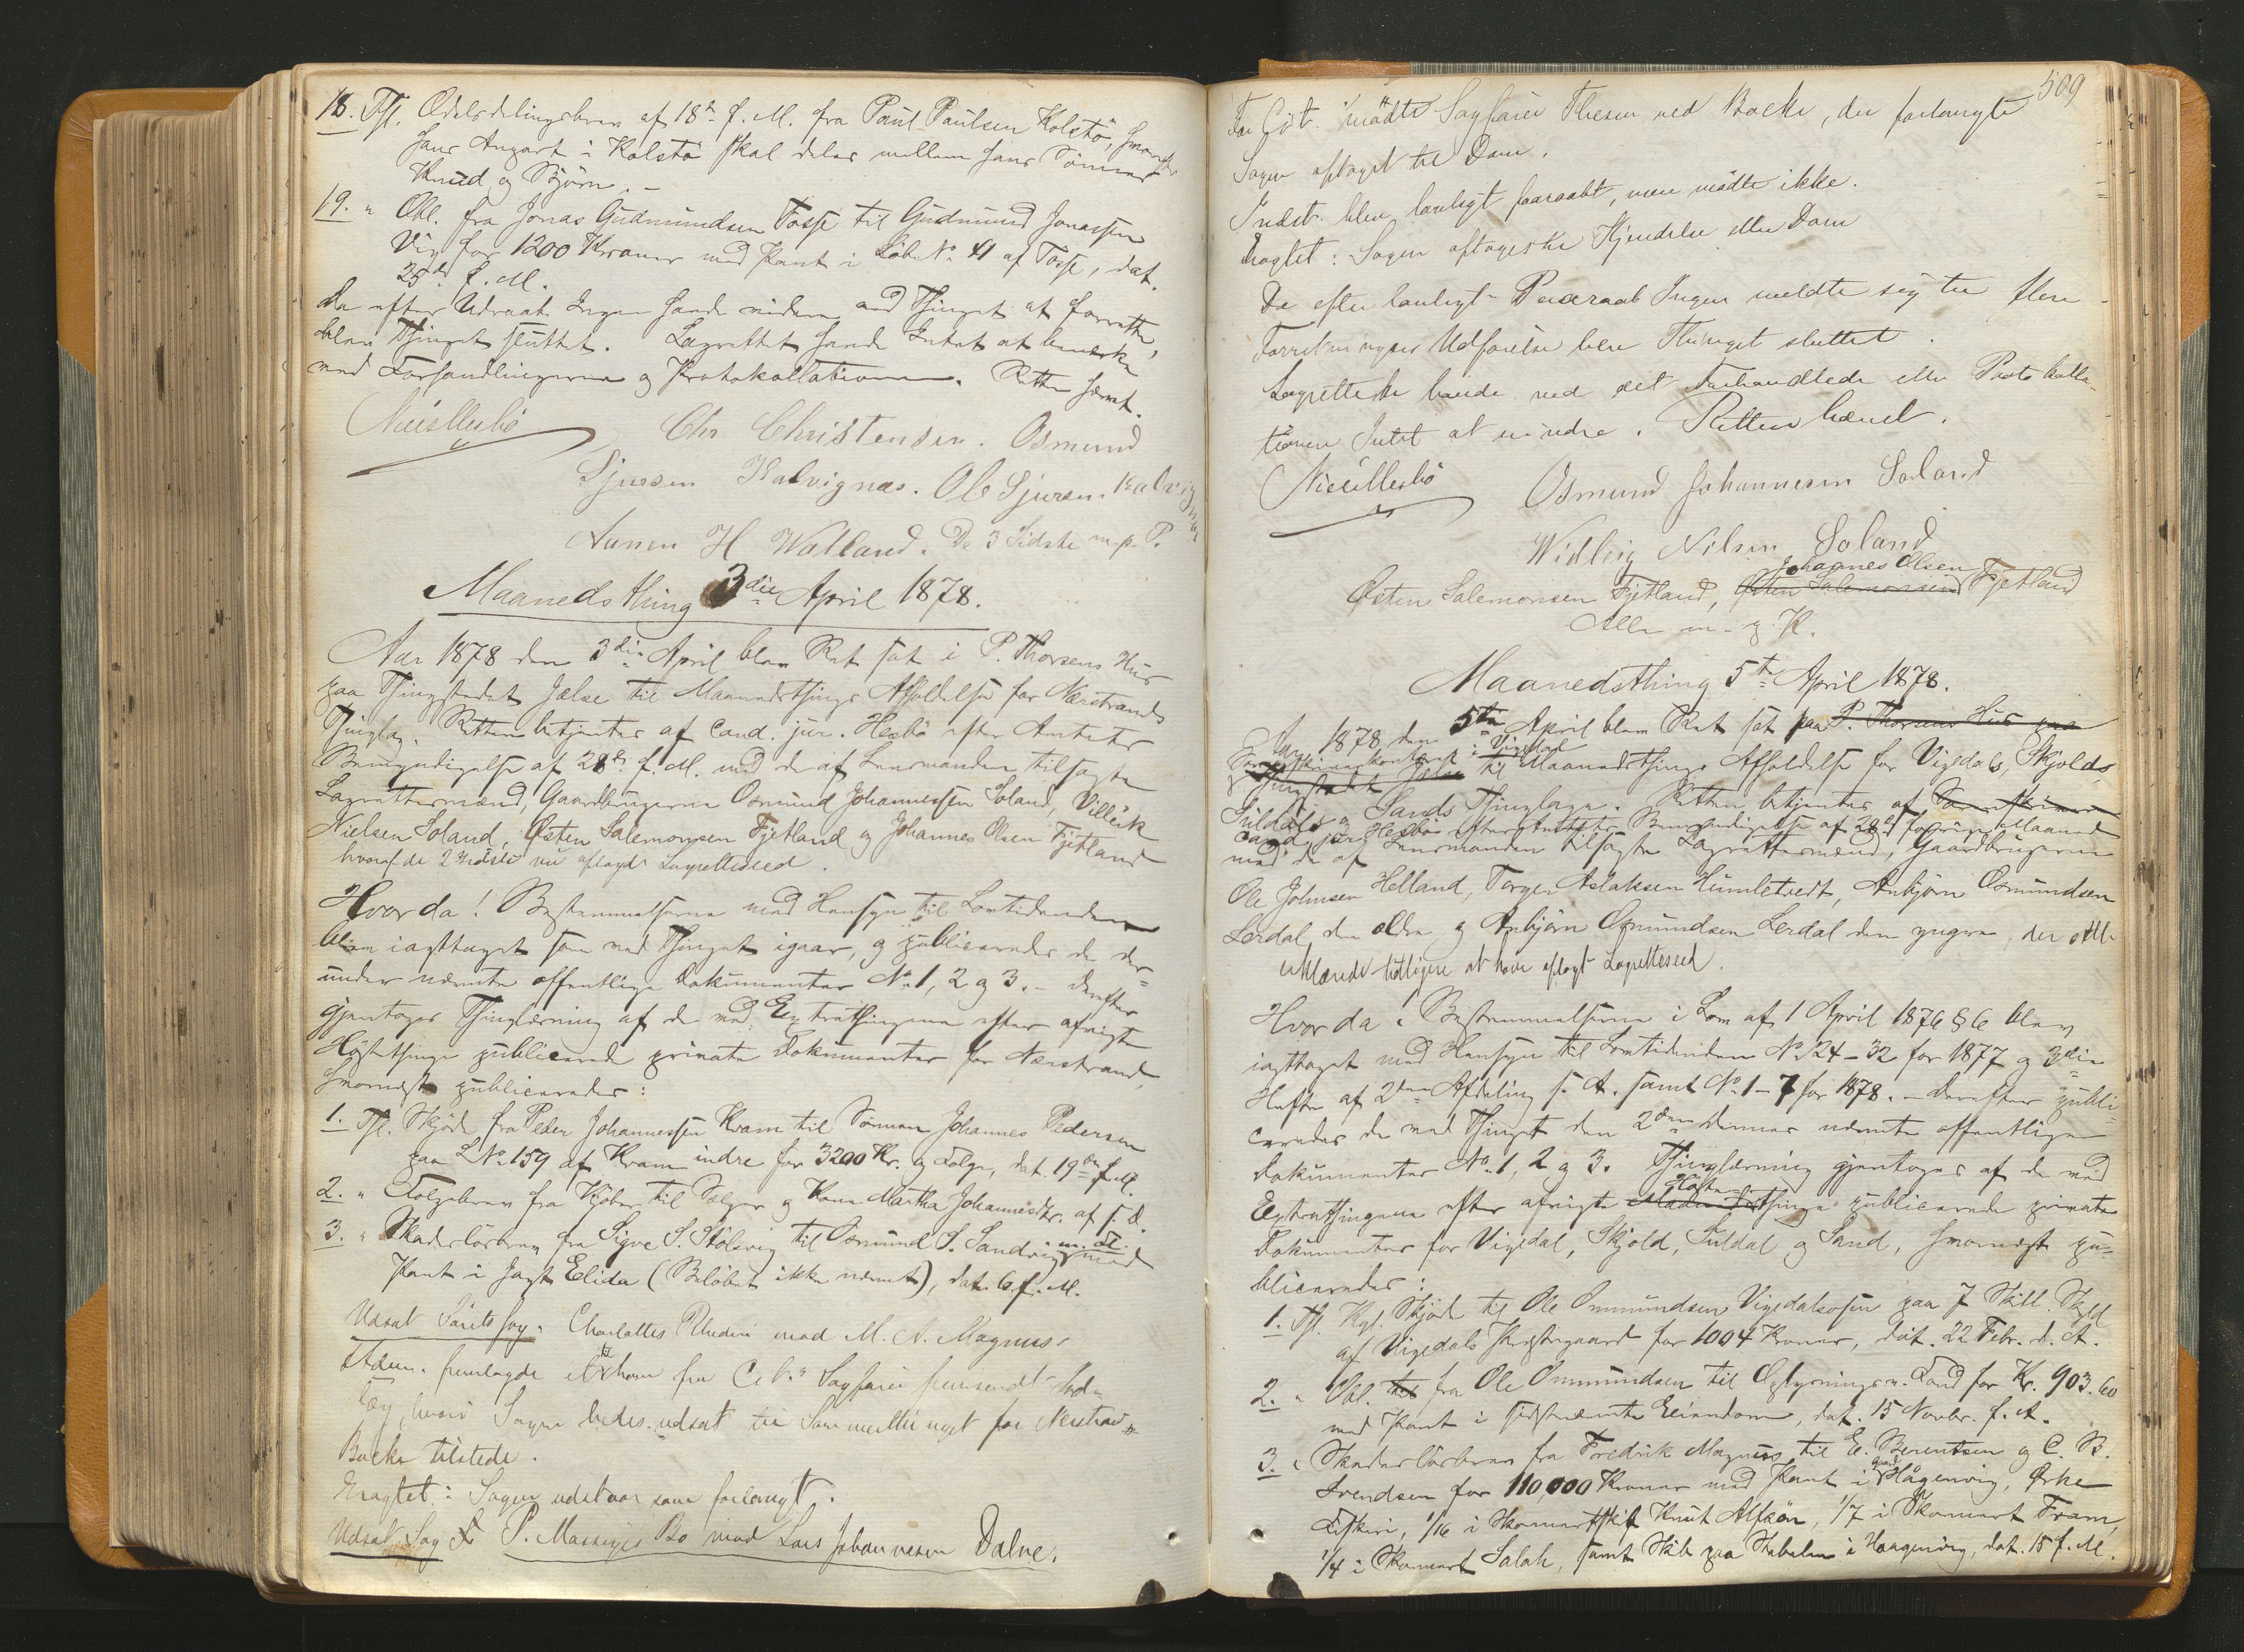 18. Tgl. Odelsdelingsbrev af 18de f. M. fra Paul Paulsen Kolstø, hvorefter
hans Anpart i Kolstø skal deles mellem hans Sønner
Knud og Bjørn. -
19. " Obl. fra Jonas Gudmundsen Tosse til Gudmund Jonassen
Vig for 1200 Kroner med Pant i Løb No 41 af Tosse, dat.
25de f. M.
Da efter Udraab Ingen havde videre ved Thinget at forrette,
blev Thinget sluttet. Lagrettet havde Intet at bemærke
ved Forhandlingerne og Protokollationen. Retten hævet.
Chr Christensen. Osmund
Sjursen Kalvignæs. Ole Sjursen Kalvignæs
H Watland. De 3 Sidste m. p. P.
Maanedsthing 3die April 1878.
Aar 1878 den 3die April blev Ret sat i P. Thorsens Hus
paa Thingstedet Jælse til Maanedsthings Afholdelse for Nærstrands
Thinglag. Retten betjentes af Cand. jur. Hesbø efter Amtets
Bemyndigelse af 28de f. M. med de af Lensmanden tilsagte
Lagrettesmænd, Gaardbrugerne Osmund Johannessen Soland, Villeik
Nielsen Soland, Østen Salemonsen Fjetland og Johannes Olsen Fjetland
hvoraf de 2 sidste nu aflagde Lagretteseed.
Hvorda! Bestemmelserne med Hensyn til Lovtidenden
blev iagttaget som ved Thinget igaar, og publiceredes de der-
under nævnte offentlige Dokumenter No 1, 2 og 3. - Derefter
gjentoges Thinglæsning af de ved Extrathingene efter afvigte
Høstething publicerede private Dokumenter for Nærstrand,
hvornæst publiceredes:
1. Tgl. Skjøde fra Peder Johannessen Kvam til Sønnen Johannes Pedersen
paa LNo 159 af Kvam indre for 3200 Kr. og Folge, dat. 19de f. M.
2. " Folgebrev fra Kjøber til Sælger og Kone Martha Johannesdtr. af s. D.
3. " Skadesløsbrev fra Sigve S. Stølsvig til Osmund S. Sandvig m. Fl. med
Pant i Jagt Elida (Beløbet ikke nævnt), dat. 6 f. M.
Udsat Søretssag: Charlottes Rhederi mod M. A. Magnus.
Adm. fremlagde et til ham fra Cit.s Sagfører fremsendt Ind-
læg, hvori Sagen bedes udsat til Sommerthinget for Nerstrand.
Backe tilstede.
Eragtet: Sagen udstaar som forlangt.
Udsat Sag P. Massiges Bo mod Lars Johannesen Dalve.
509
For Cit. mødte Sagfører Thesen ved Backe, der forlangte
Sagen optaget til Dom.
Indst. blev lovligt paaraabt, men mødte ikke.
Eragtet: Sagen optages til Kjendelse eller Dom
Da efter lovligt Paaraab Ingen meldte sig til flere
Forretningers Udførelse blev Thinget sluttet.
Lagrettet havde ved det Forhandlede eller Protokolla-
tionen Intet at erindre. Retten hævet.
Osmund Johannesen Soland
Nilsen Soland
Johannes Olsen
Østen Salemonsen Fjetland, Østen Salemonsen Fjetland
Alle m. p. P.
Maanedsthing 5te April 1878.
Aar 1878 den 5te April blev Ret sat paa P. Thorsens Hus paa
Sorenskriverkontoret i Vigedal
Thingstedet Jælse til Maanedsthings Afholdelse for Vigedals, Skjolds
Suldals og Sands Thinglage. Retten betjentes af Sorenskriver
Cand. jur. Hesbø efter Amtets Bemyndigelse af 28de forrige Maaned
med de af Lensmanden tilsagte Lagrettesmænd, Gaardbrugerne
Ole Johnsen Helland, Torger Aslaksen Humletvedt, Anbjørn Osmundsen
Lerdal den ældre og Anbjørn Osmundsen Lerdal den yngre, der alle
erklærede tidligere at have aflagt Lagretteseed.
Hvorda! Bestemmelserne i Lov af 1 April 1876 § 6 blev
iagttaget med Hensyn til Lovtidenden No 24-32 for 1877 og 3die
Hefte af 2den Afdeling s. A. samt No 1-7 for 1878. - Derefter publi-
ceredes de ved Thinget den 2den dennes nævnte offentlige
Dokumenter No 1, 2 og 3. Thinglæsning gjentoges af de ved
Høste
Extrathingene efter afvigte Maanedsthinge publicerede private
Dokumenter for Vigedal, Skjold, Suldal og Sand, hvornæst pu-
bliceredes:
1. Tgl. Kgl. Skjøde til Ole Ommundsen Vigedalsosen paa 7 Skill. Skyld
af Vigedals Præstegaard for 1004 Kroner, dat. 22 Febr. d. A.
2. " Obl. fra Ole Ommundsen til Oplysningsv. Fond for Kr. 903.60
med Pant i sidstnævnte Eiendom, dat. 15 Novbr. f. A.
3. " Skadesløsbrev fra Fredrik Magnus til E. Berentsen og C. B.
Svendsen for 110,000 Kroner med Pant i Gaard Hågenvig, Ørke
Fiskeri, 1/16 i Skonnertskib Knut Alfsøn, 1/7 i Skonnert Fram,
1/4 i Skonnert Salah, samt Skib paa Stabelen i Haagenvig, dat. 15 f. M.